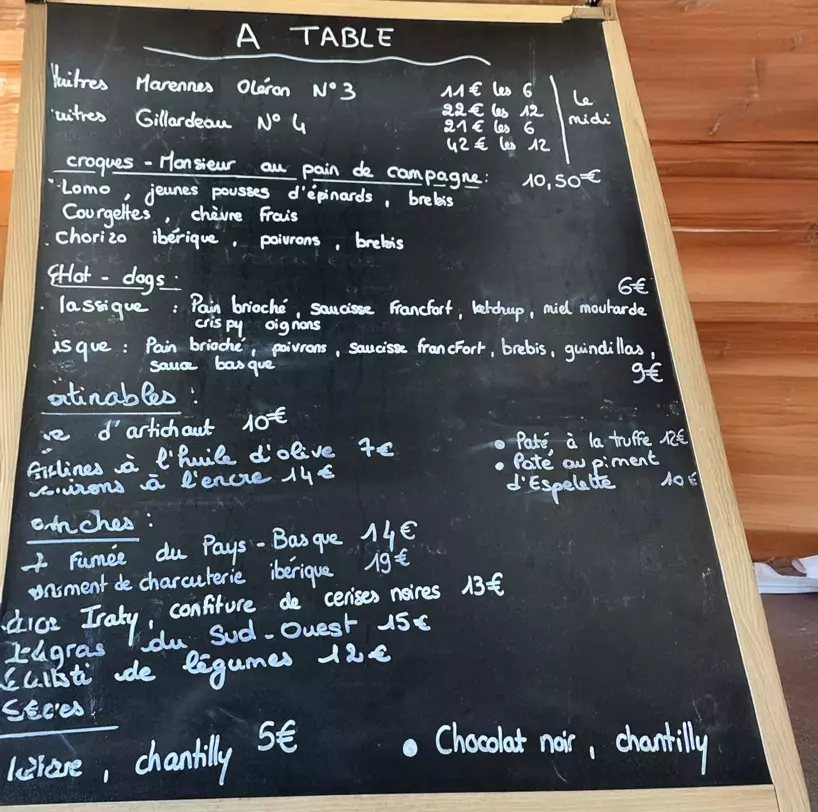 A TABLE
Huitres Marennes Oléron N°3 11€ les 6
22€ les 12
uitres Gillardeau N°4 21€ les 6
42€ les 12
Le midi
croques - Monsieur au pain de campagne: 10,50€
Lomo, jeunes pousses d'épinards, brebis
Courgettes, chèvre frais
. Chorizo ibérique, poivrons, brebis
Hot - dogs: 6€
. lassique : Pain brioché, saucisse Francfort, ketchup, miel moutarde
crispy oignons
asque : Pain brioché, poivrons, saucisse francfort, brebis, guindillas,
sauce basque 9€
artinables :
d'artichaut 10€
à l'huile d'olive 7€
à l'encre 14€
• Paté à la truffe 12€
• Paté au piment
d'Espelette 10€
anches :
Fumée du Pays-Basque 14€
de charcuterie ibérique 19€
Iraty, confiture de cerises noires 13€
gras du Sud-Ouest 15€
de légumes 12€
, chantilly 5€
• Chocolat noir, chantilly